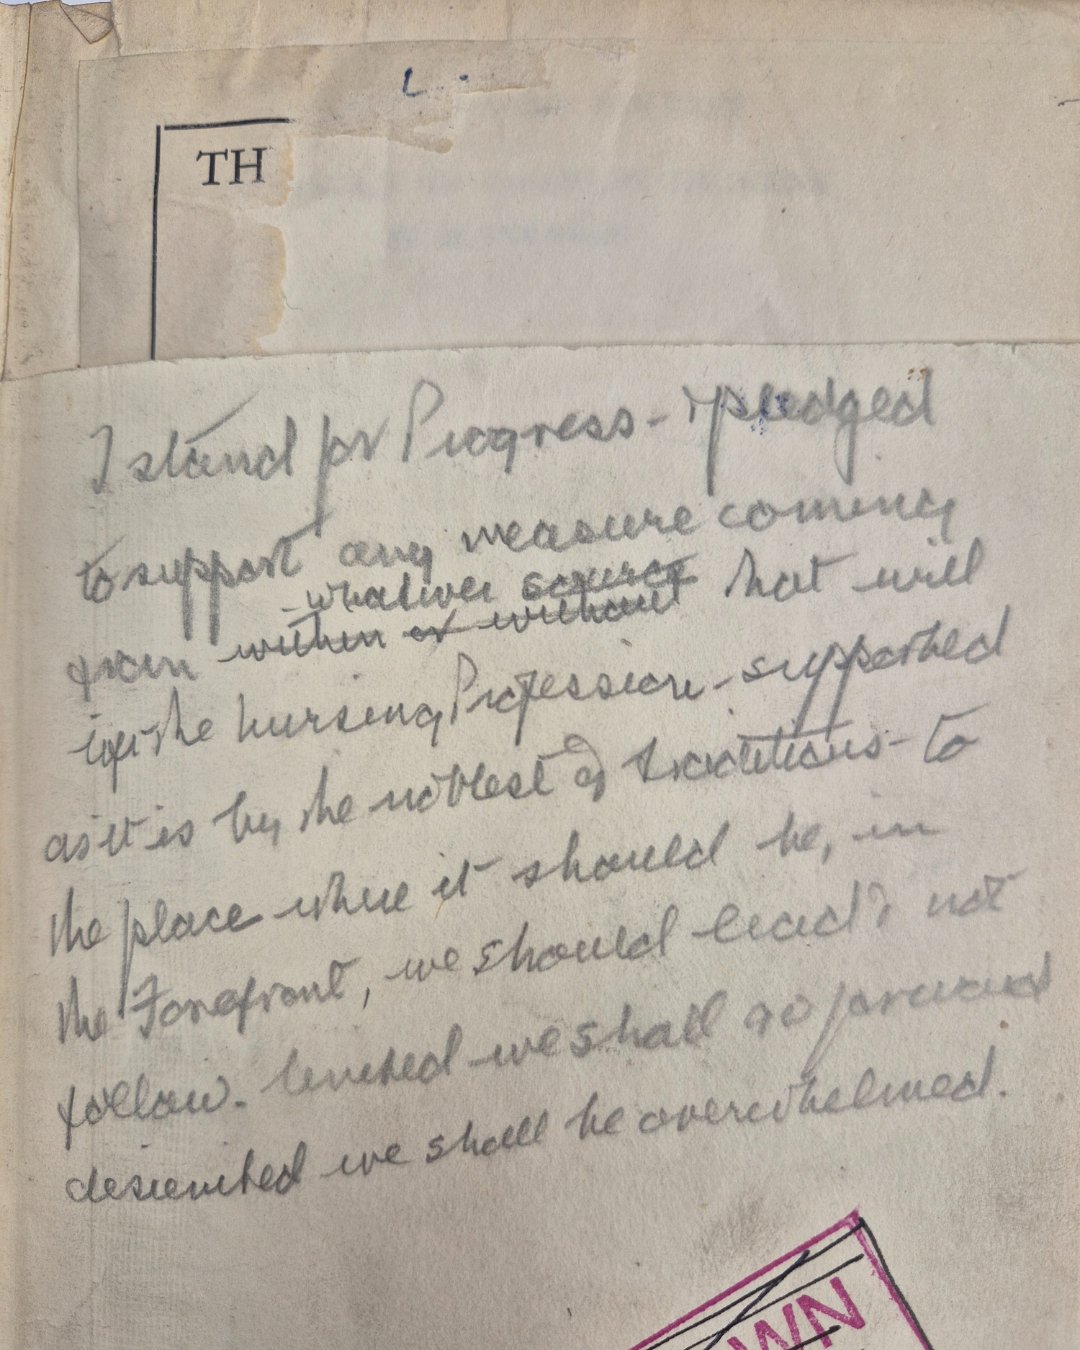 L.
TH
I stand for Progress - & pledged
to support any measure coming
whatever source
from within or without that will
the nursing Profession - supported
as it is by the noblest of traditions - to
the place where it should be, in
the Forefront, we should lead & not
follow. United we shall go forward
disunited we shall be overwhelmed.
WN